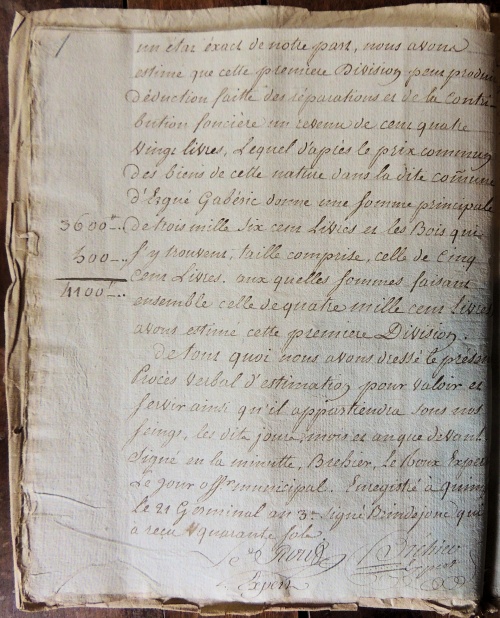 un état éxact de notre part, nous avons
estimé que cette premiere Division peut produ
déduction faitte des réparations et de la contri
bution fonciere un revenu de cent quatre
vingt livres, Lequel d'après le prix commun
des biens de cette nature dans la dite commune
d'Ergué Gabéric donne une somme principale
3600ᵗ... de trois mille six cent Livres et les Bois qui
500-... s'y trouvent, taille comprise, celle de Cinq
4100ᵗ... cent Livres. aux quelles sommes faisant
ensemble celle de quatre mille cent Livres
avons estimé cette premiere Division.
de tout quoi nous avons dressé le présent
Procès verbal d'estimation pour valoir et
servir ainsi qu'il appartiendra sous nos
seings, les dits jours, mois et an que devant
Signé en la minutte, Brehier, le Roux Expert
Le jour offr municipal. Enregistré à Quimp
le 21 Germinal an 3e signé Brindejonc qui
a reçu quarante sols
Le Roux Bréhier
Expert Expert